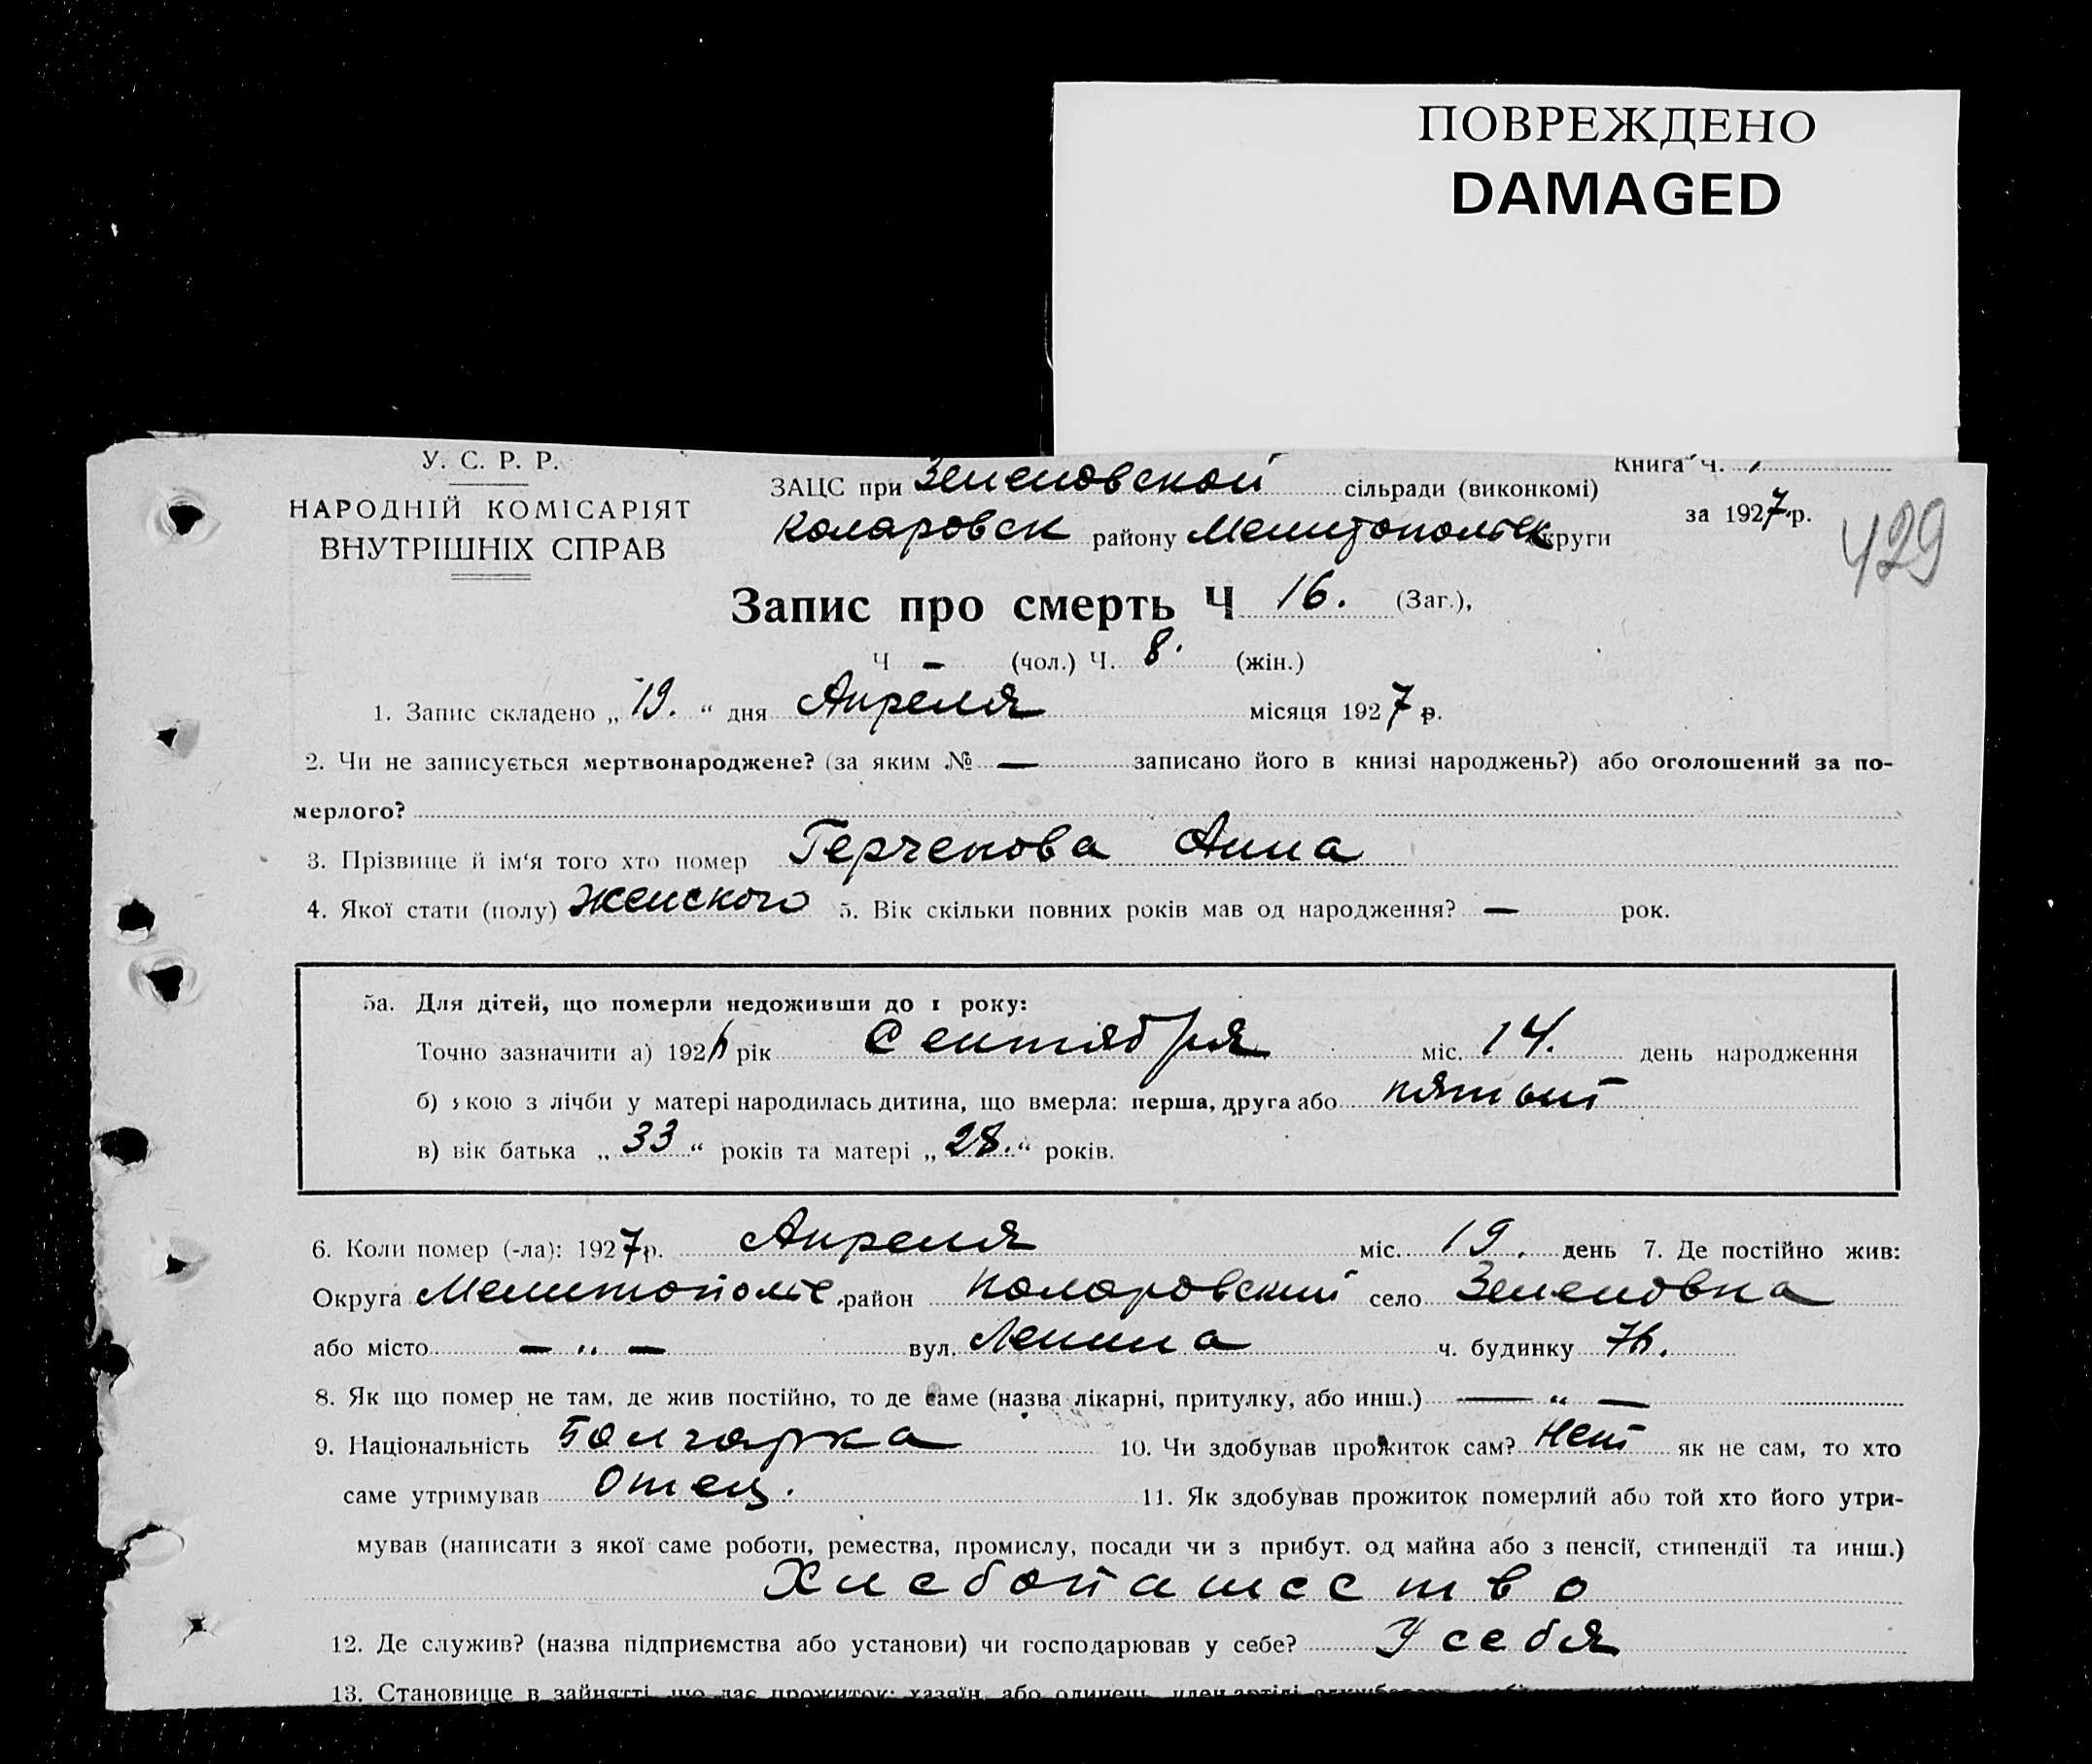 ПОВРЕЖДЕНО
DAMAGED
У. С. Р. Р.
НАРОДНІЙ КОМІСАРІЯТ
ВНУТРІШНІХ СПРАВ
Книга Ч. 1
за 1927 р.
429
ЗАЦС при Зеленовской сільради (виконкомі)
Коларовск району Мелитопольск округи
Запис про смерть Ч 16. (Заг.),
Ч — (чол.) Ч. 8. (жін.)
1. Запис складено „ 19. “ дня Апреля місяця 1927 р.
2. Чи не записується мертвонароджене? (за яким № — записано його в книзі народжень?) або оголошений за по-
мерлого?
3. Прізвище й ім'я того хто помер Герченова Анна
4. Якої стати (полу) Женского 5. Вік скільки повних років мав од народження? — рок.
5а. Для дітей, що померли недоживши до 1 року:
Точно зазначити а) 1926 рік Сентября міс. 14. день народження
б) якою з лічби у матері народилась дитина, що вмерла: перша, друга або пятый
в) вік батька „ 33 “ років та матері „ 28. “ років.
6. Коли помер (-ла): 1927 р. Апреля міс. 19. день 7. Де постійно жив:
Округа Мелитопольс. район Коларовский село Зеленовка
або місто — „ — вул. Ленина ч. будинку 76.
8. Як що помер не там, де жив постійно, то де саме (назва лікарні, притулку, або инш.) — “ —
9. Національність Болгарка 10. Чи здобував прожиток сам? Нет як не сам, то хто
саме утримував Отец. 11. Як здобував прожиток померлий або той хто його утри-
мував (написати з якої саме роботи, ремества, промислу, посади чи з прибут. од майна або з пенсії, стипендії та инш.)
Хлебопашество
12. Де служив? (назва підприємства або установи) чи господарював у себе? У себя
13. Становище в зайнятті, що дає прожиток: хазяїн, або одинець, член артілі